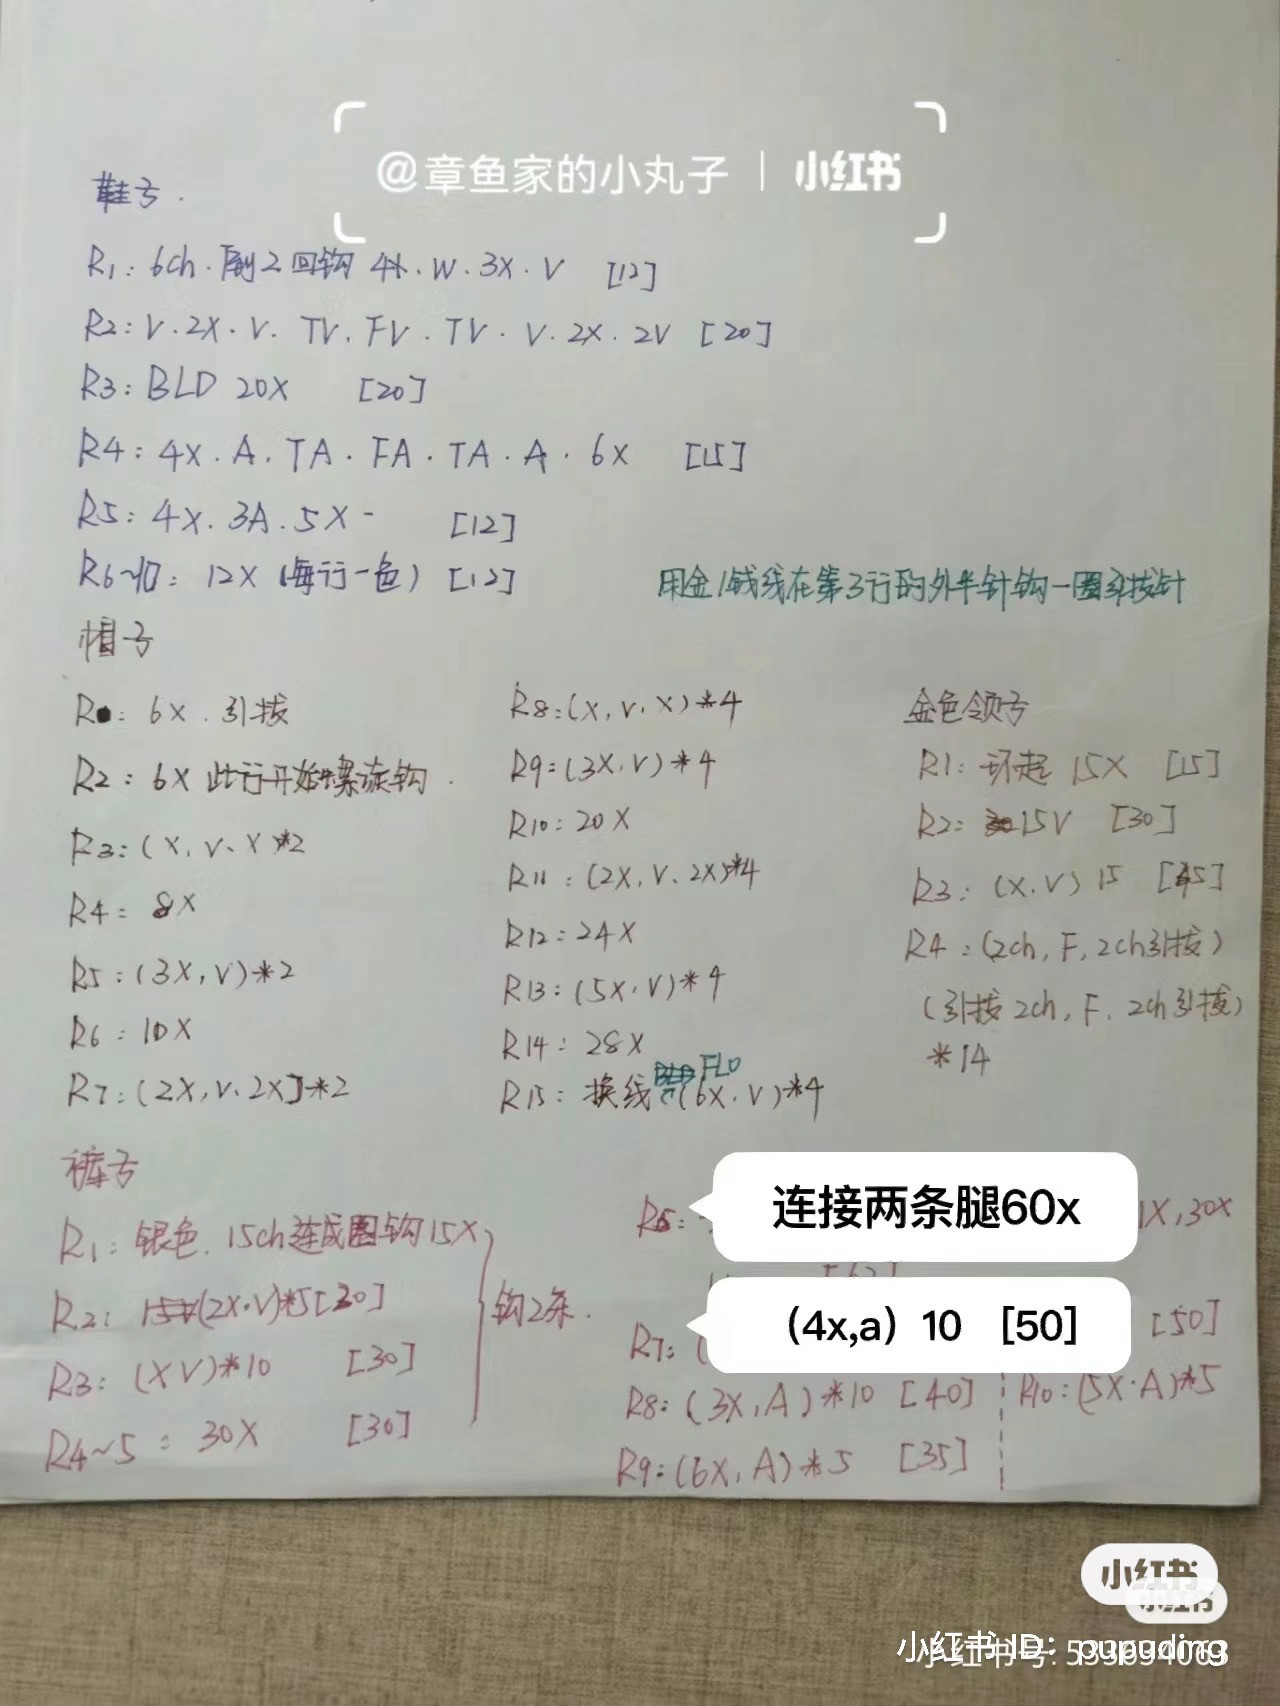 @章鱼家的小丸子 | 小红书
鞋子.
R1: 6ch.倒2回钩 4X.W.3X.V [12]
R2: V.2X.V. TV. FV. TV. V. 2X. 2V [20]
R3: BLD 20X [20]
R4: 4X.A.TA.FA.TA.A.6X [15]
R5: 4X.3A.5X [12]
12X (每行一色) [12]
用金/钱线在第3行的外半针钩一圈引拔针
帽子
6X.引拔
R2: 6X 此行开始螺旋钩.
R3: (X,V,X)*2
R4: 8X
R5: (3X,V)*2
R6: 10X
R7: (2X,V,2X]*2
R8: (X,V,X)*4
R9: (3X,V)*4
R10: 20X
R11: (2X,V,2X)*4
R12: 24X
R13: (5X,V)*4
R14: 28X
FLO
R15: 换线(6X,V)*4
金色领子
R1: 环起 15X [15]
R2: 15V [30]
R3: (X.V) 15 [45]
R4: (2ch, F, 2ch引拔)
(引拔2ch, F, 2ch引拔)
*14
裤子
R1: 银色.15ch连成圈钩15X
R2: (2X.V)*5[20]
R3: (XV)*10 [30]
R4~5: 30X [30]
钩2条.
R6: 连接两条腿60x 1X,30X
R7: (4x,a) 10 [50] [50]
R8: (3X,A)*10 [40]
R9: (6X,A)*5 [35]
R10: (5X.A)*5
小红书
小红书
小红书 ID: pupuding